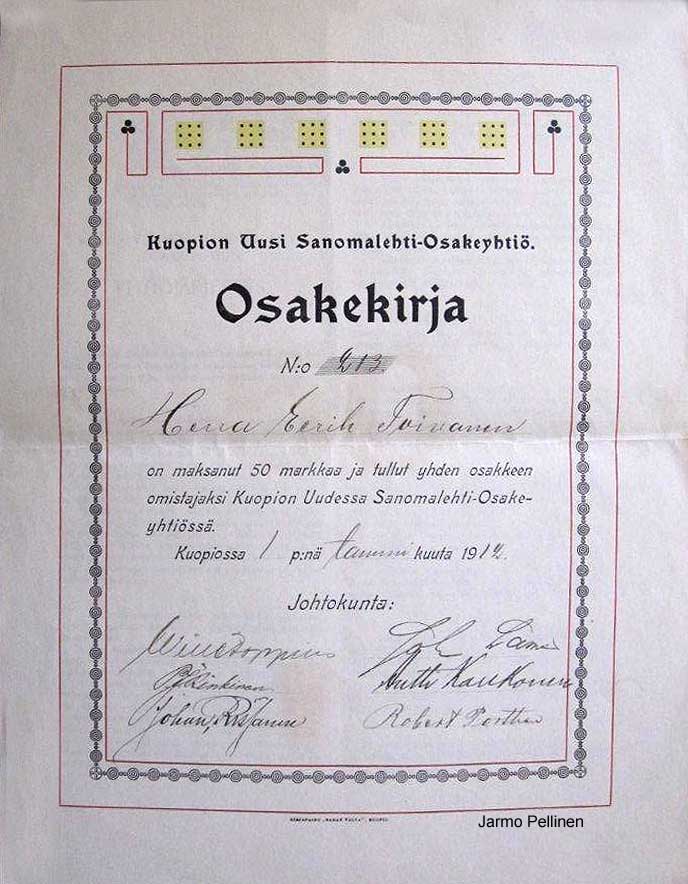 Kuopion Uusi Sanomalehti-Osakeyhtiö.
Osakekirja
N:o 213
Herra Eerik Toivanen
on maksanut 50 markkaa ja tullut yhden osakkeen
omistajaksi Kuopion Uudessa Sanomalehti-Osake-
yhtiössä.
Kuopiossa 1 p:nä tammi kuuta 1912.
Johtokunta:
Antti Kaukonen
Johan
Robert
KUOPIO
Jarmo Pellinen